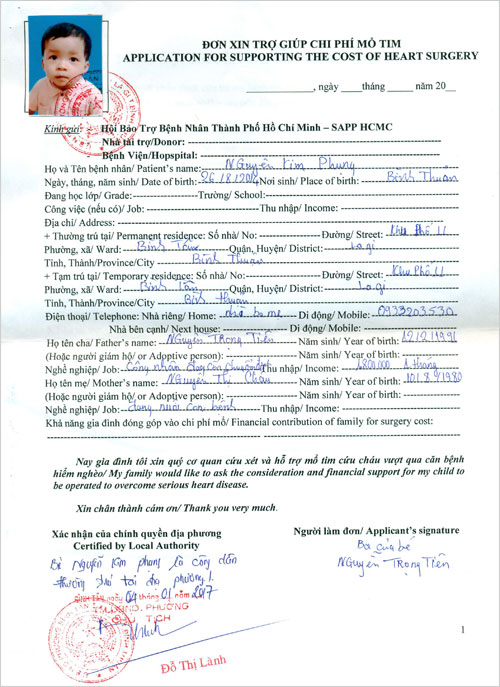 ĐƠN XIN TRỢ GIÚP CHI PHÍ MỔ TIM
APPLICATION FOR SUPPORTING THE COST OF HEART SURGERY
, ngày ____ tháng _____ năm 20__
Kính gửi: Hội Bảo Trợ Bệnh Nhân Thành Phố Hồ Chí Minh – SAPP HCMC
Nhà tài trợ/Donor:
Bệnh Viện/Hopspital:
Họ và Tên bệnh nhân/ Patient's name: Nguyễn Kim Phụng
Ngày, tháng, năm sinh/ Date of birth: 26.18.2014 Nơi sinh/ Place of birth: Bình Thuận
Đang học lớp/ Grade: Trường/ School:
Công việc (nếu có)/ Job: Thu nhập/ Income:
Địa chỉ/ Address:
+ Thường trú tại/ Permanent residence: Số nhà/ No: Đường/ Street: Khu Phố 11
Phường, xã/ Ward: Bình Tân Quận, Huyện/ District: La gi
Tỉnh, Thành/Province/City Bình Thuận
+ Tạm trú tại/ Temporary residence: Số nhà/ No: Đường/ Street: Khu Phố 11
Phường, xã/ Ward: Bình Tân Quận, Huyện/ District: La gi
Tỉnh, Thành/ Province/City Bình Thuận
Điện thoại/ Telephone: Nhà riêng/ Home: nhà ba mẹ Di động/ Mobile: 0933203530
Nhà bên cạnh/ Next house: Di động/ Mobile:
Họ tên cha/ Father's name: Nguyễn Trọng Tiên Năm sinh/ Year of birth: 1991
(Hoặc người giám hộ/ or Adoptive person): Năm sinh/ Year of birth:
Nghề nghiệp/ Job: Công nhân Thu nhập/ Income: tháng
Họ tên mẹ/ Mother's name: Nguyễn Thị Châu Năm sinh/ Year of birth: 1980
(Hoặc người giám hộ/ or Adoptive person): Năm sinh/ Year of birth:
Nghề nghiệp/ Job: đang nuôi con bệnh Thu nhập/ Income:
Khả năng gia đình đóng góp vào chi phí mổ/ Financial contribution of family for surgery cost:
Nay gia đình tôi xin quý cơ quan cứu xét và hỗ trợ mổ tim cứu cháu vượt qua căn bệnh
hiểm nghèo/ My family would like to ask the consideration and financial support for my child to
be operated to overcome serious heart disease.
Xin chân thành cám ơn/ Thank you very much.
Xác nhận của chính quyền địa phương
Certified by Local Authority
Người làm đơn/ Applicant's signature
Ba của bé
Nguyễn Trọng Tiên
Bé Nguyễn Kim phụng là công dân
thường trú tại phường
BÌNH TÂN, ngày 04 tháng 01 năm 2017
TM.UBND. PHƯỜNG
CHỦ TỊCH
Đỗ Thị Lành
1